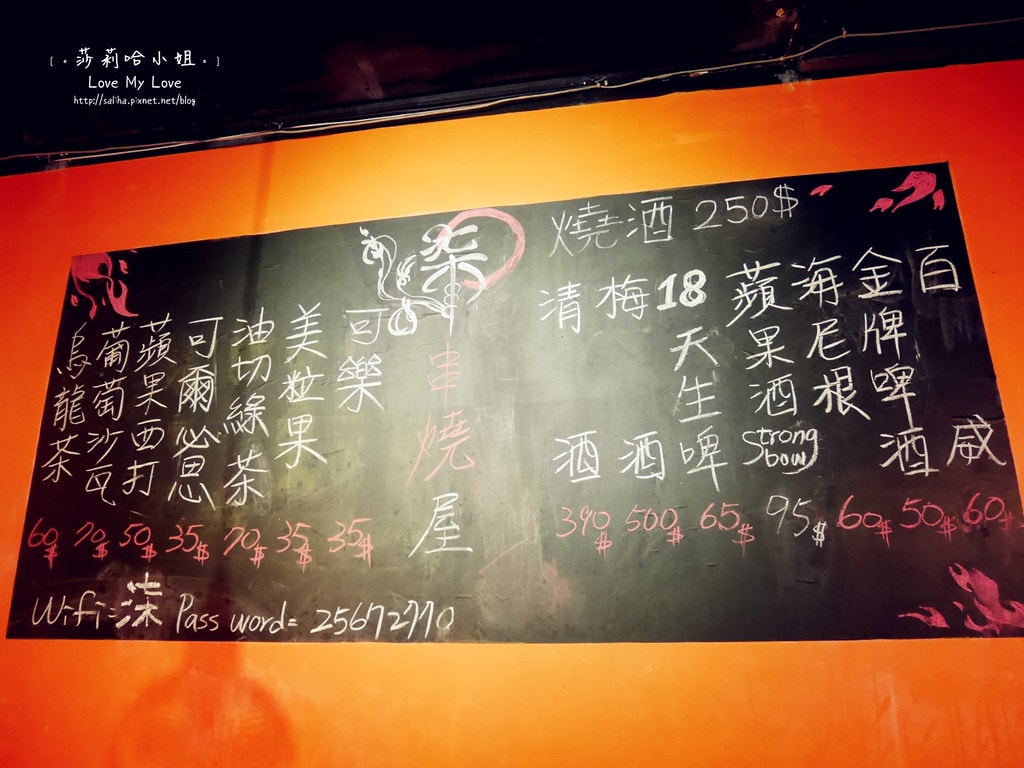 [。莎莉哈小姐。]
Love My Love
http://saliha.pixnet.net/blog
燒酒 250$
百威 60$
金牌啤酒 50$
海尼根 60$
蘋果酒 Strong bow 95$
18天生啤 65$
梅酒 500$
清酒 390$
柒串燒屋
可樂 35$
美粒果 35$
油切綠茶 70$
可爾必思 35$
蘋果西打 50$
葡萄沙瓦 70$
烏龍茶 60$
Wifi=柒 Pass word= 25672770